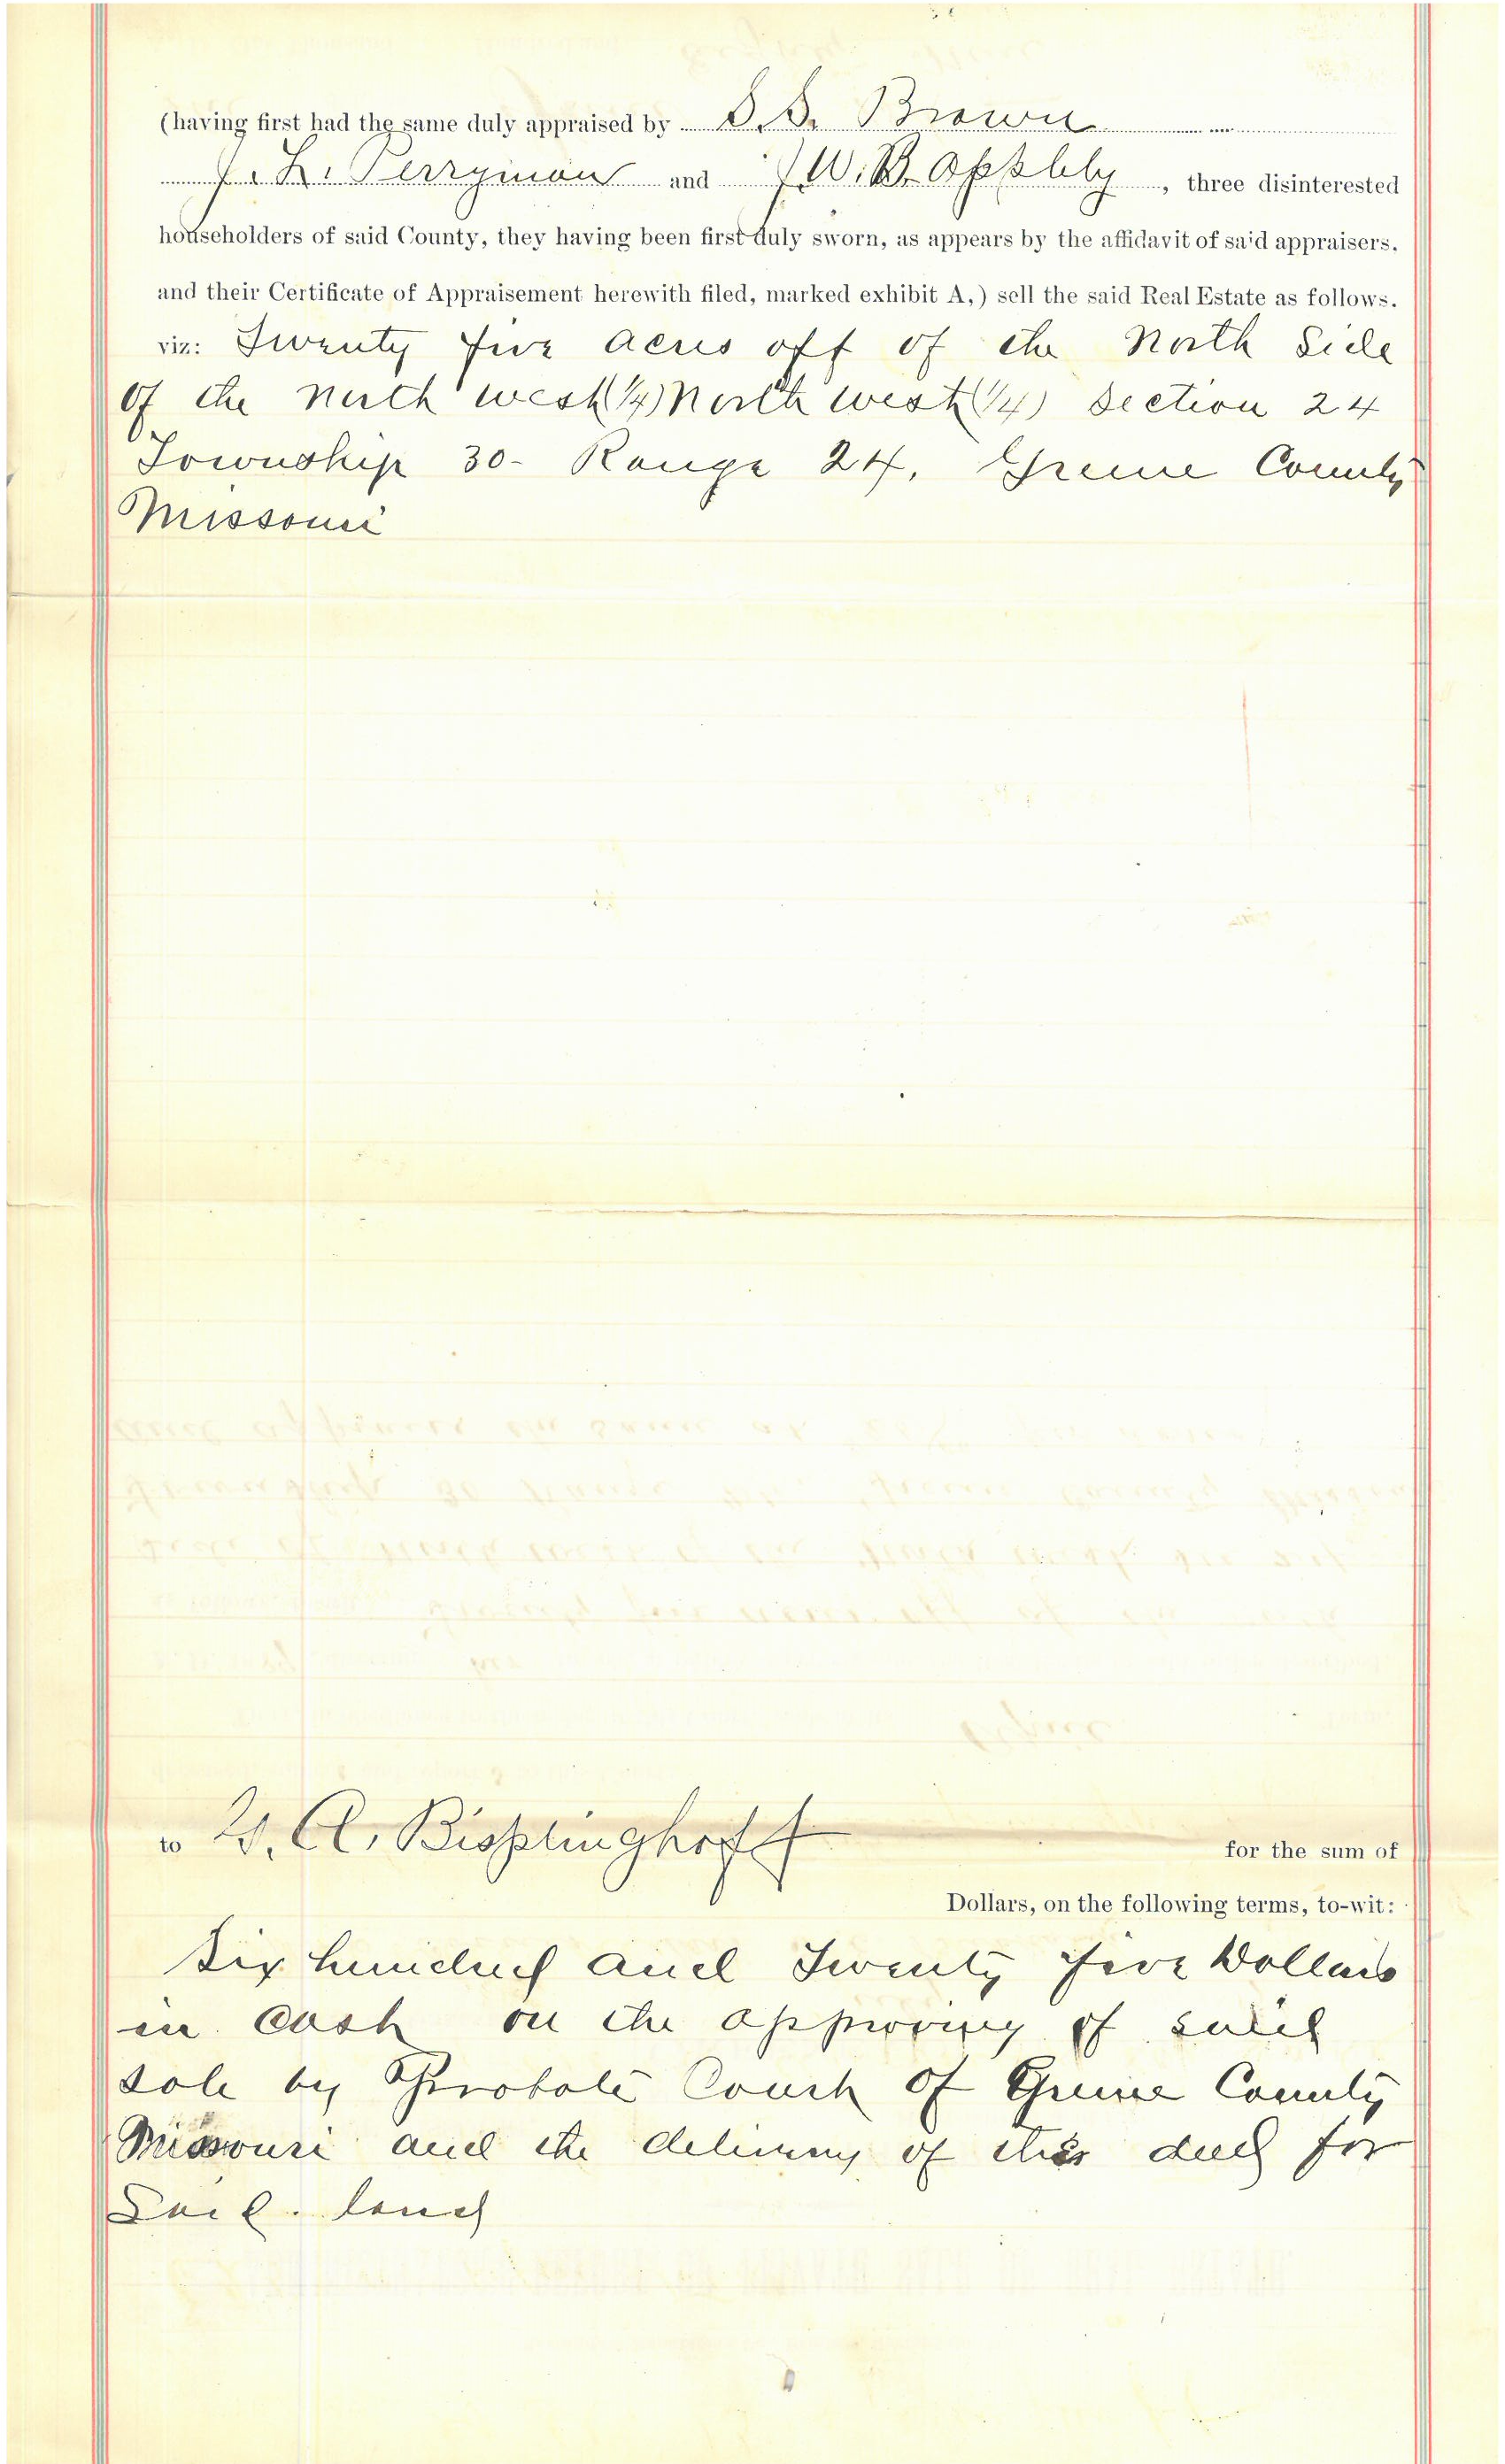 (having first had the same duly appraised by S. S. Brown
J. L. Perryman and W. B. Appleby, three disinterested
householders of said County, they having been first duly sworn, as appears by the affidavit of said appraisers.
and their Certificate of Appraisement herewith filed, marked exhibit A,) sell the said Real Estate as follows.
viz: Twenty five acres off of the North Side
of the North west (1/4) North west (1/4) Section 24
Township 30- Range 24, Greene County
Missouri
to W. A. Bisplinghoff for the sum of
Dollars, on the following terms, to-wit:
Six hundred and Twenty five Dollars
in cash on the approving of said
sale by Probate Court of Greene County
Missouri and the delivery of this deed for
Said. land